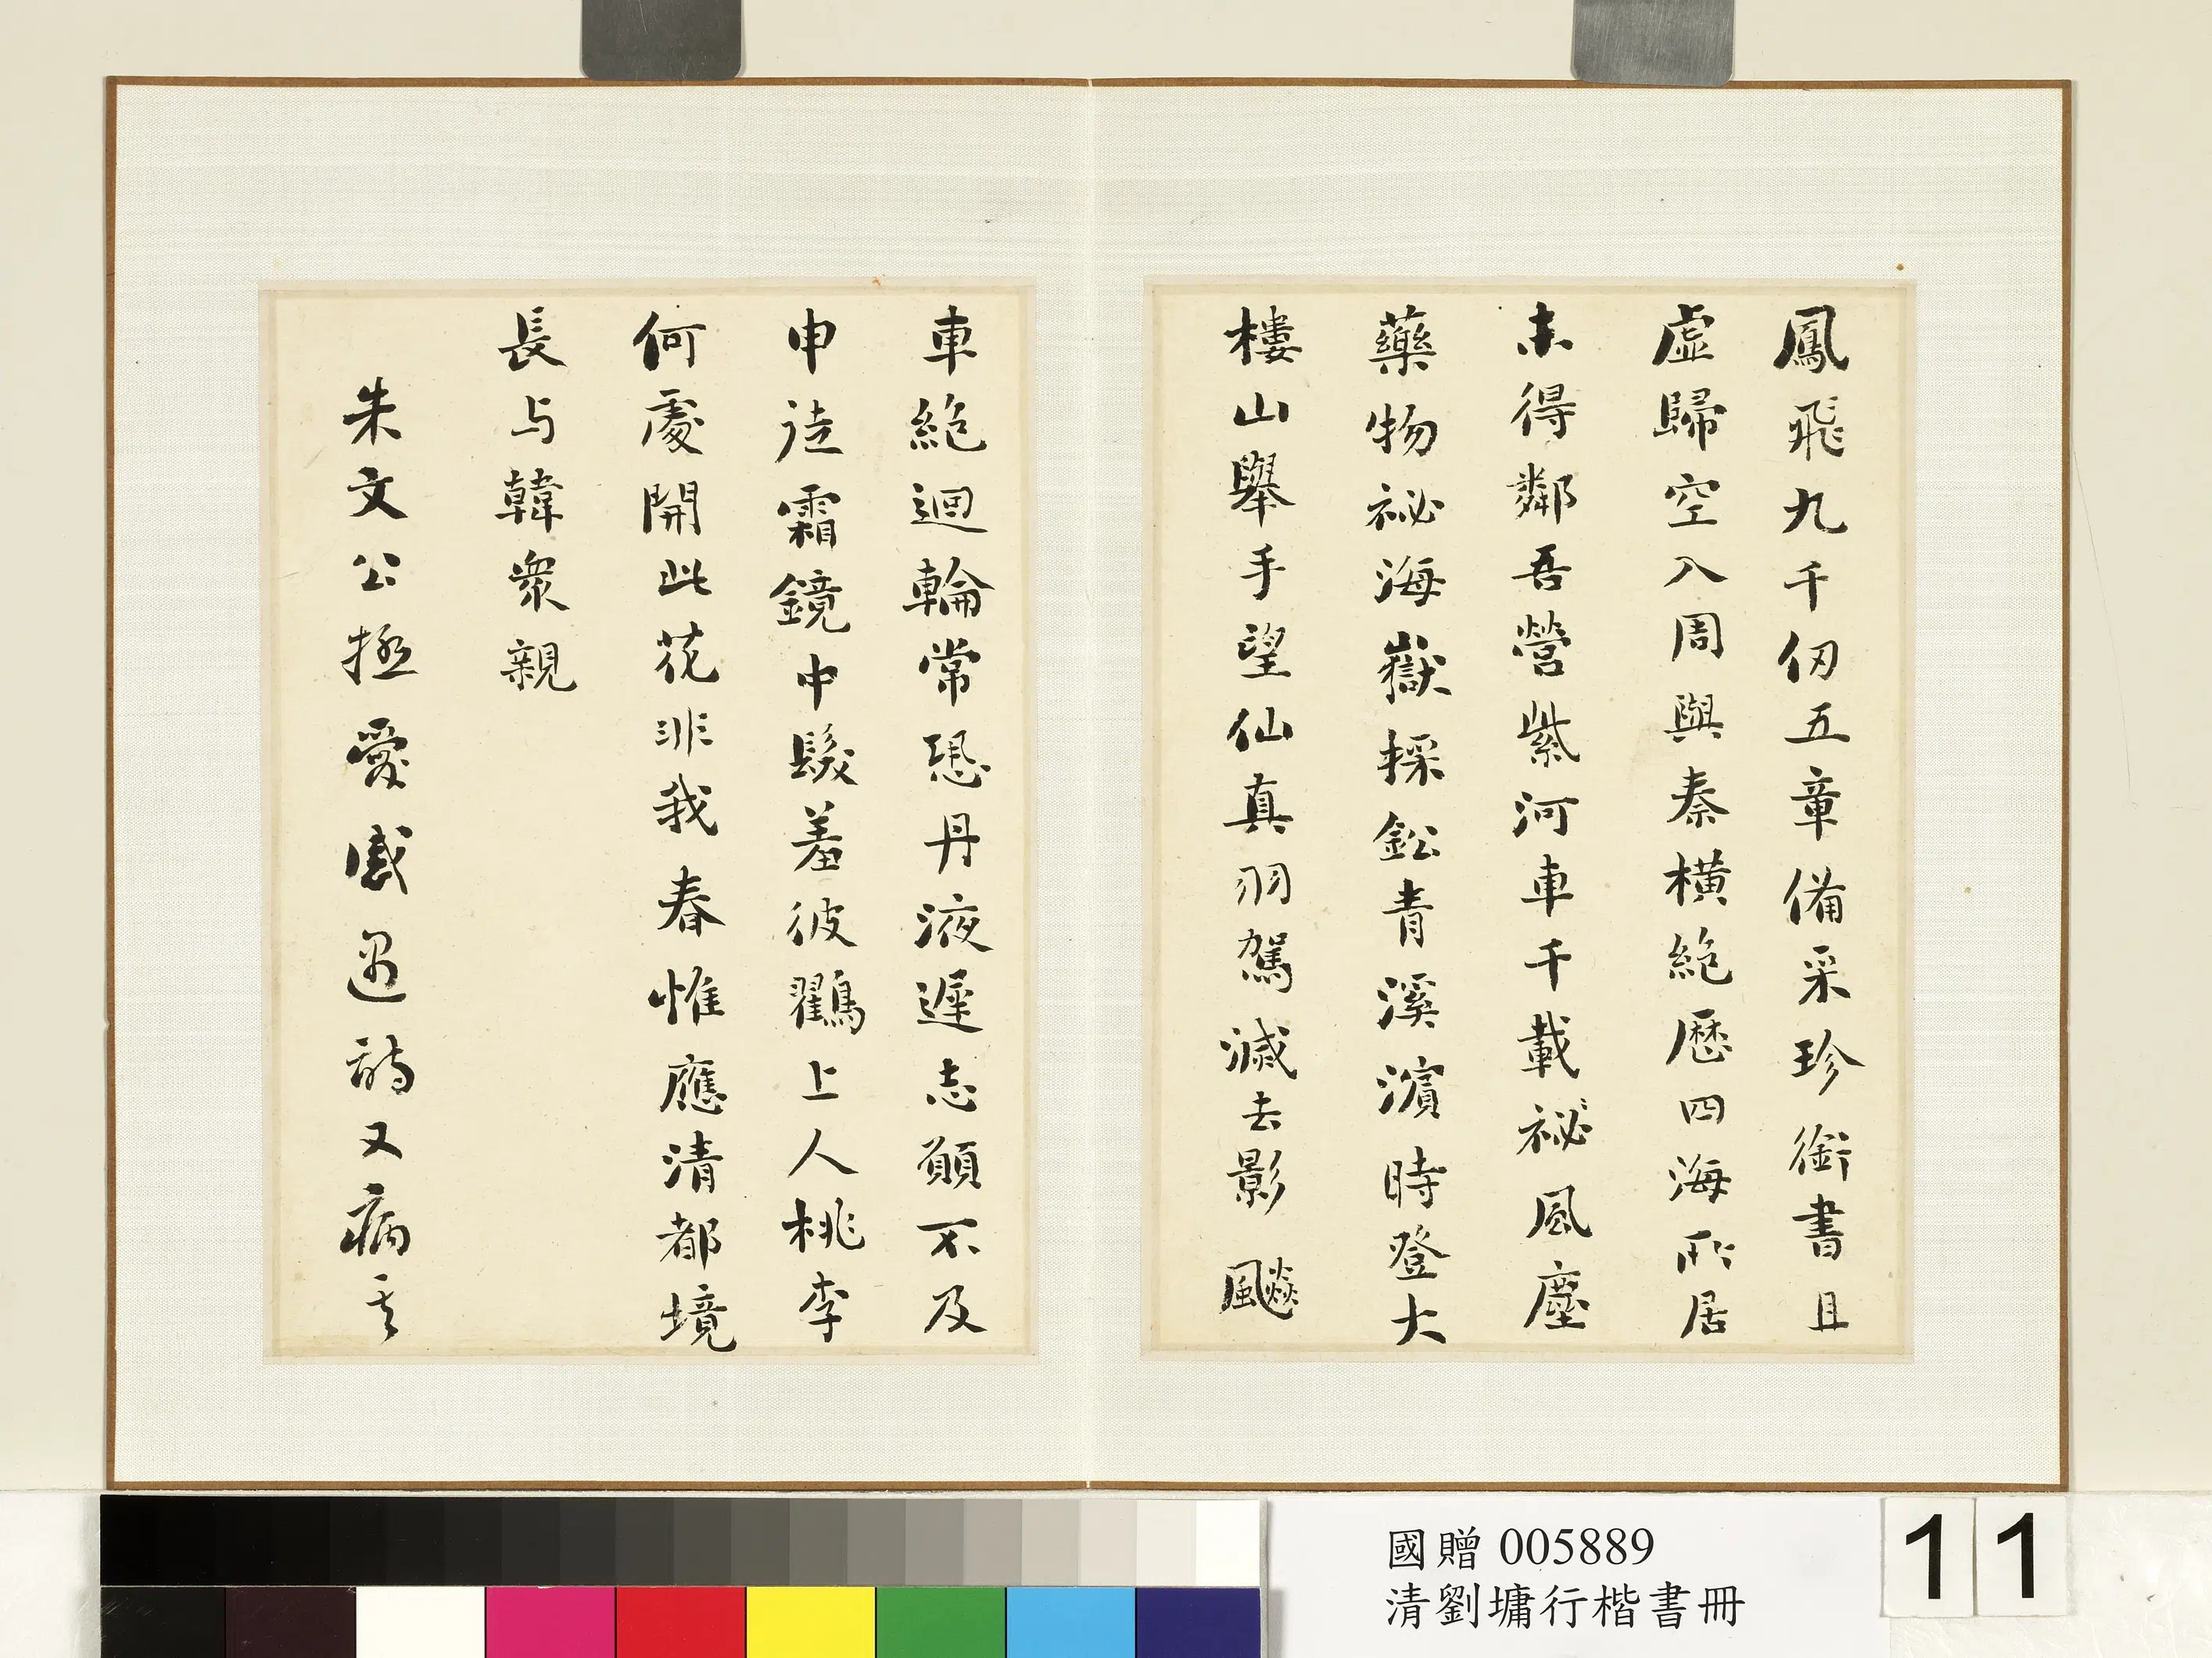 鳳飛九千仞五章備采珍銜書且
虛歸空入周與秦橫絕歷四海所居
未得鄰吾營紫河車千載祕風塵
藥物祕海嶽採鈆青溪濱時登大
樓山舉手望仙真羽駕滅去影飈
車絕迴輪常恐丹液遲志願不及
申徒霜鏡中髮羞彼鶴上人桃李
何處開此花非我春惟應清都境
長与韓衆親
朱文公極愛感遇詩又病其
國贈 005889
清劉墉行楷書冊
11